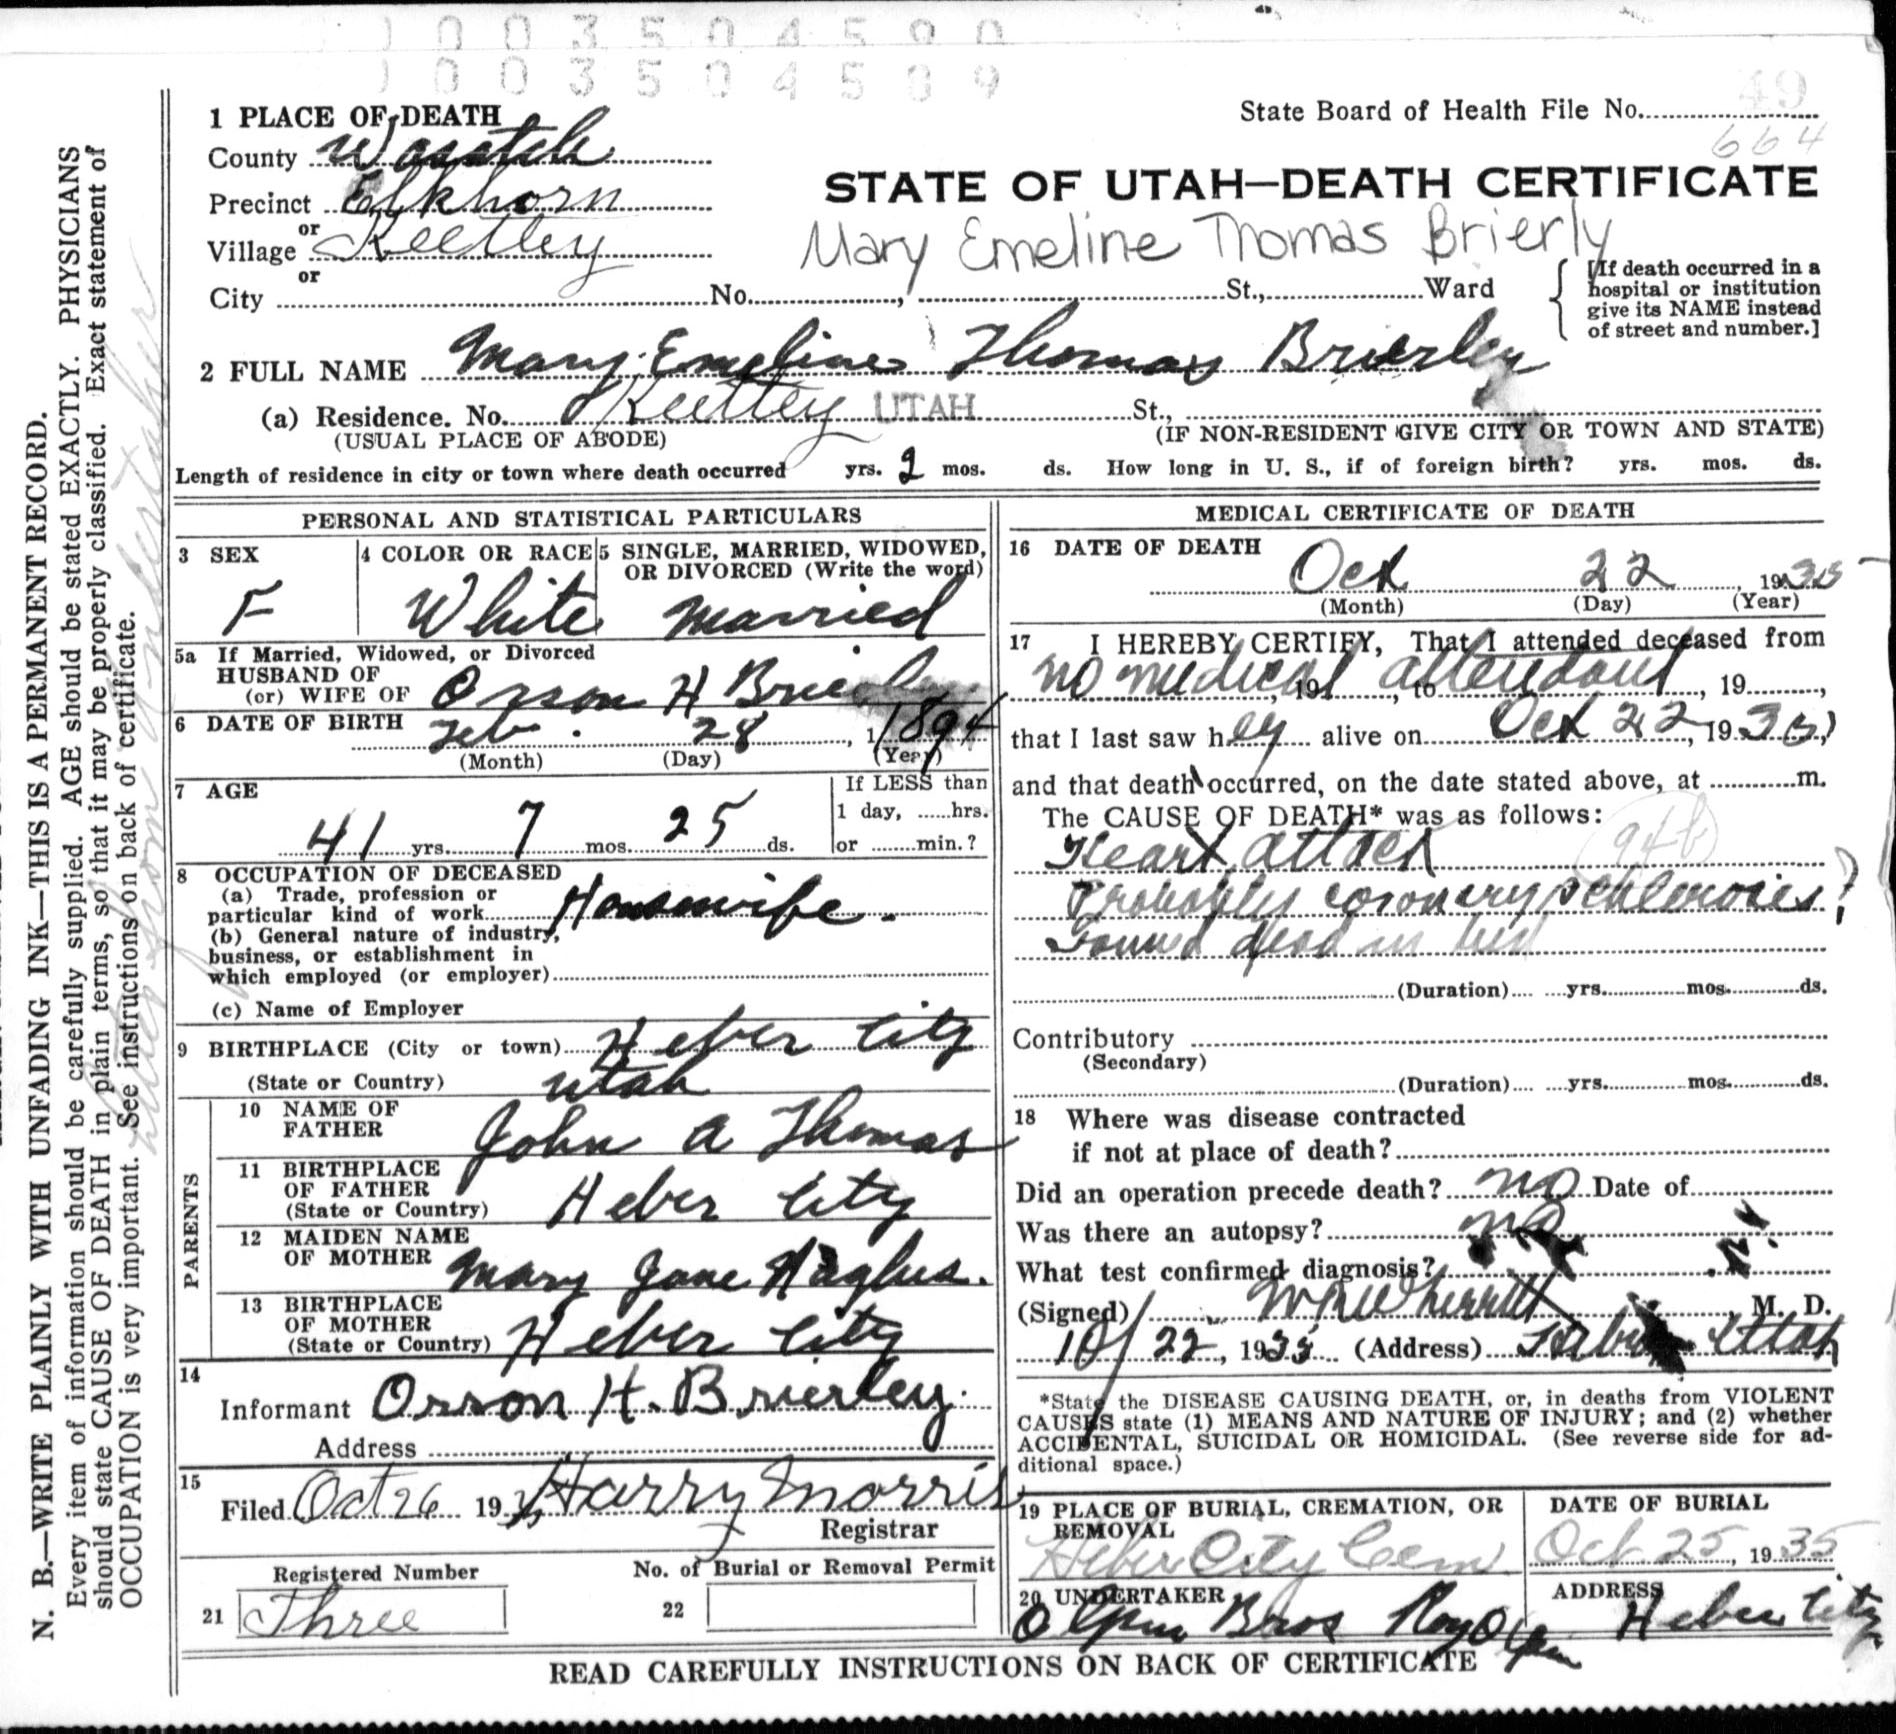 0003504590
0003504589
49
1 PLACE OF DEATH
State Board of Health File No.
664
County Wasatch
STATE OF UTAH—DEATH CERTIFICATE
Precinct Elkhorn
or
Village Keetley
Mary Emeline Thomas Brierly
or
City No. , St., Ward
[If death occurred in a
hospital or institution
give its NAME instead
of street and number.]
2 FULL NAME Mary Emeline Thomas Brierley
(a) Residence. No. Keetley UTAH St.,
(USUAL PLACE OF ABODE) (IF NON-RESIDENT GIVE CITY OR TOWN AND STATE)
Length of residence in city or town where death occurred yrs. 2 mos. ds. How long in U. S., if of foreign birth? yrs. mos. ds.
PERSONAL AND STATISTICAL PARTICULARS
3 SEX 4 COLOR OR RACE 5 SINGLE, MARRIED, WIDOWED,
OR DIVORCED (Write the word)
F White Married
5a If Married, Widowed, or Divorced
HUSBAND OF
(or) WIFE OF Orson H Brierley
6 DATE OF BIRTH Feb. 28, 1894
(Month) (Day) (Year)
7 AGE If LESS than
1 day, hrs.
41 yrs. 7 mos. 25 ds. or min.?
8 OCCUPATION OF DECEASED
(a) Trade, profession or
particular kind of work Housewife.
(b) General nature of industry,
business, or establishment in
which employed (or employer)
(c) Name of Employer
9 BIRTHPLACE (City or town) Heber City
(State or Country) Utah
PARENTS
10 NAME OF
FATHER John A Thomas
11 BIRTHPLACE
OF FATHER
(State or Country) Heber City
12 MAIDEN NAME
OF MOTHER Mary Jane
13 BIRTHPLACE
OF MOTHER
(State or Country) Heber City
14
Informant Orson H. Brierley.
Address
15
Filed Oct 26 19 Harry Morris
Registrar
Registered Number No. of Burial or Removal Permit
21 Three 22
MEDICAL CERTIFICATE OF DEATH
16 DATE OF DEATH
Oct 22, 1935
(Month) (Day) (Year)
17 I HEREBY CERTIFY, That I attended deceased from
no medical attendant, 19 , to , 19 ,
that I last saw her alive on Oct 22, 1935,
and that death occurred, on the date stated above, at m.
The CAUSE OF DEATH* was as follows:
Heart attack 94b
Probably coronary schlerosis?
Found dead in bed
(Duration) yrs. mos. ds.
Contributory
(Secondary)
(Duration) yrs. mos. ds.
18 Where was disease contracted
if not at place of death?
Did an operation precede death? no Date of
Was there an autopsy? no
What test confirmed diagnosis?
(Signed) , M. D.
10/22, 1935 (Address) Heber Utah
*State the DISEASE CAUSING DEATH, or, in deaths from VIOLENT
CAUSES state (1) MEANS AND NATURE OF INJURY; and (2) whether
ACCIDENTAL, SUICIDAL OR HOMICIDAL. (See reverse side for ad-
ditional space.)
19 PLACE OF BURIAL, CREMATION, OR
REMOVAL
Heber City Cem.
DATE OF BURIAL
Oct. 25, 1935
20 UNDERTAKER ADDRESS
Olpin Bros Roy Olpin Heber City
READ CAREFULLY INSTRUCTIONS ON BACK OF CERTIFICATE
N. B.—WRITE PLAINLY WITH UNFADING INK—THIS IS A PERMANENT RECORD.
Every item of information should be carefully supplied. AGE should be stated EXACTLY. PHYSICIANS
should state CAUSE OF DEATH in plain terms, so that it may be properly classified. Exact statement of
OCCUPATION is very important. See instructions on back of certificate.
from Undertaker